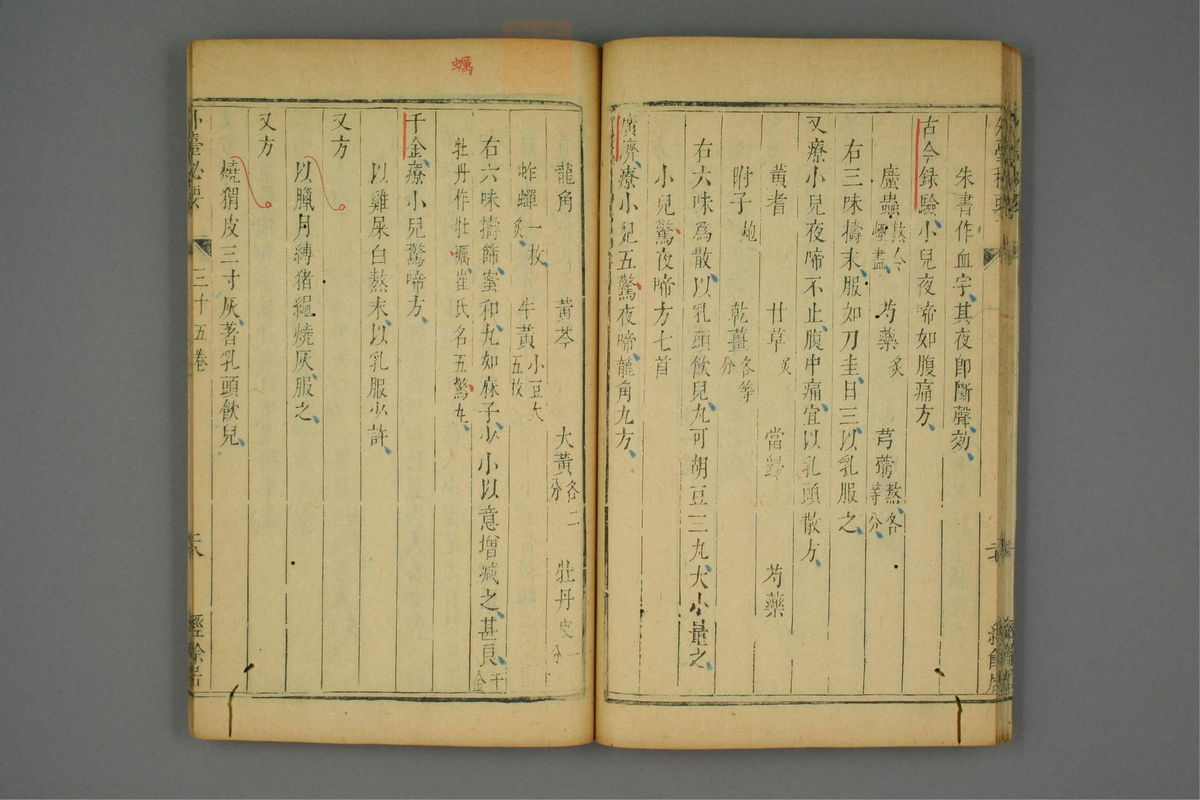 朱書作血字其夜即斷聲効
古今録驗小兒夜啼如腹痛方
䗪蟲熬令煙盡 芍藥炙 芎藭熬各等分
右三味擣末服如刀圭日三以乳服之
又療小兒夜啼不止腹中痛宜以乳頭散方
黄耆 甘草炙 當歸 芍藥
附子炮 乾薑各等分
右六味爲散以乳頭飲兒丸可胡豆三丸大小量之
小兒驚夜啼方七首
廣濟療小兒五驚夜啼龍角丸方
龍角 黄芩 大黄各二分 牡丹皮一分
蚱蟬一枚炙 牛黄小豆大五枚
右六味擣篩蜜和丸如麻子少小以意增減之甚良千金
牡丹作牡蠣崔氏名五驚丸
千金療小兒驚啼方
以雞屎白熬末以乳服少許
又方
以臘月縛猪繩燒灰服之
又方
燒猬皮三寸灰著乳頭飲兒
外臺秘要 三十五卷 經餘居
蠣